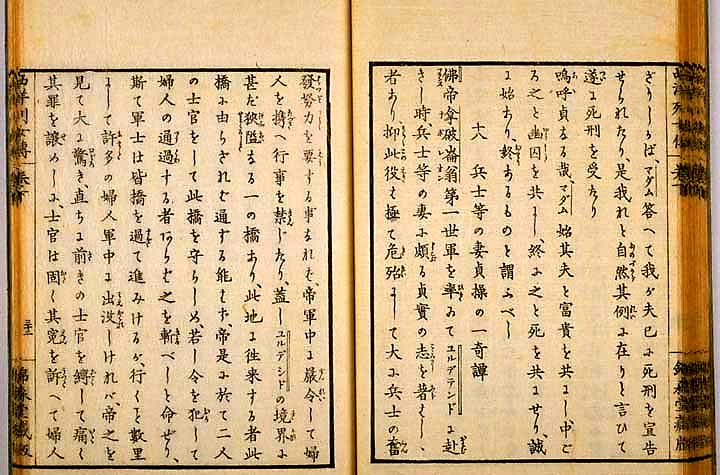 ざりしかば、マダム答へて我が夫已に死刑を宣告
せられたり、是我れと自然其例に在りと言ひて
遂に死刑を受たり
嗚呼貞なる哉、マダム始其夫と富貴を共にし、中ご
ろ之と幽囚を共にし、終に之と死を共にせり、誠
に始あり、終あるものと謂ふべし
十八 兵士等の妻貞操の一奇譚
佛帝拿破崙翁第一世軍を率ゐてユルデテンドに赴
きし時兵士等の妻に頗る貞實の志を著はし
者あり、抑此役は極て危殆にして大に兵士の奮
發努力を要する事なれば、帝軍中に嚴令して婦
人を携へ行事を禁じたり、蓋しユルデシドの境界に
甚だ狹隘なる一の橋あり、此地に往来する者此
橋に由らざれば通する能はず、帝是に於て二人
の士官をして此橋を守らしめ、若し令を犯して
婦人の通過する者あらば之を斬べしと命ぜり、
斯て軍士は皆橋を過て進みけるが、行くこと數里
にして許多の婦人軍中に出没しければ、帝之を
見て大に驚き、直ちに前きの士官を縛して痛く
其罪を讓めしに、士官は固く其寃を訴へて婦人